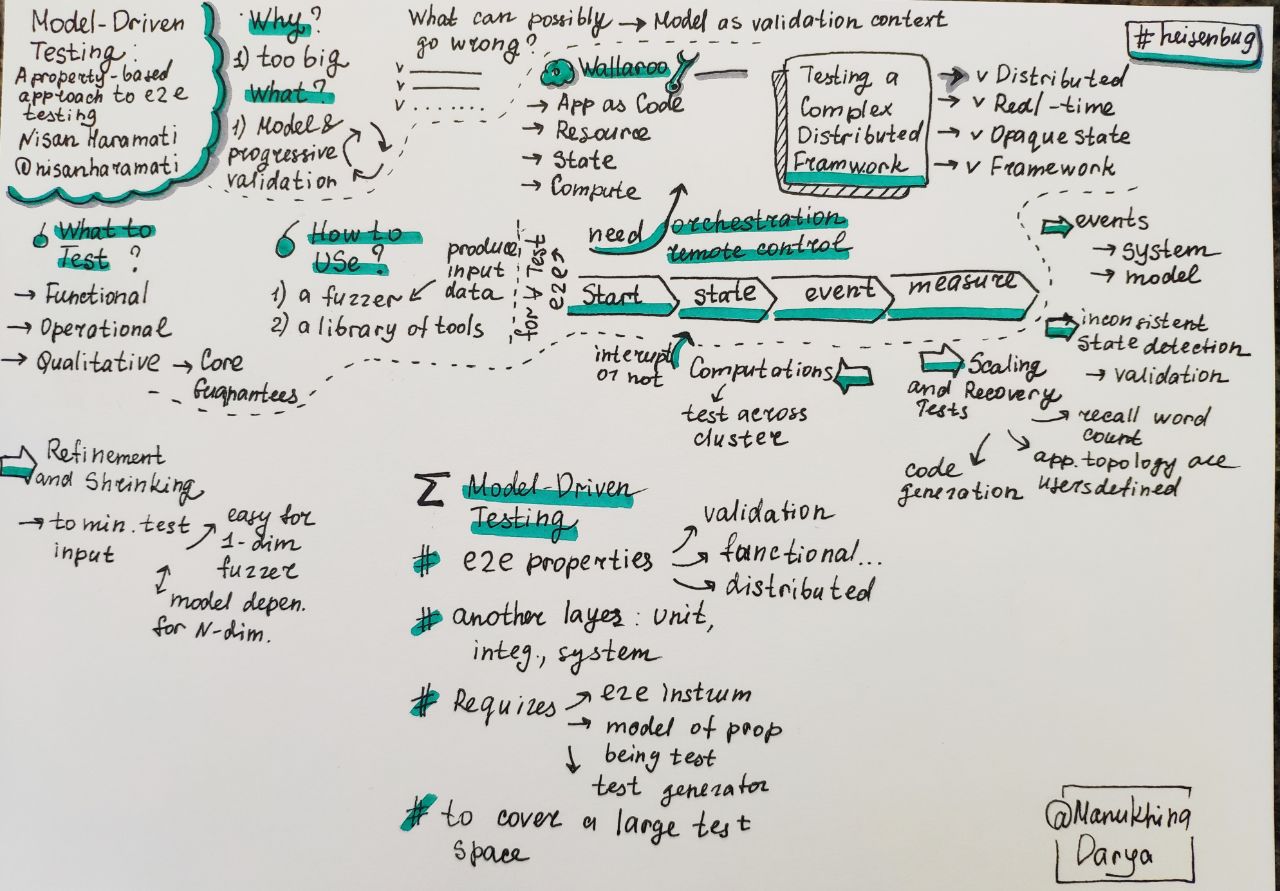 Model-Driven
Testing:
A property-based
approach to e2e
testing
Nisan Haramati
@nisanharamati
Why?
1) too big
What?
1) Model &
progressive
validation
What can possibly → Model as validation context
go wrong?
Wallaroo
→ App as Code
→ Resource
→ State
→ Compute
Testing a
Complex
Distributed
Framwork
→ v Distributed
→ v Real-time
→ v Opaque state
→ v Framework
# heisenbug
What to
Test ?
→ Functional
→ Operational
→ Qualitative → Core
Guarantees
How to
Use?
1) a fuzzer
2) a library of tools
produce
input
data
for ∀ Test
e2e
need orchestration
remote control
Start
state
event
measure
interupt
or not
Computations
test across
cluster
events
→ system
→ model
inconsistent
state detection
→ validation
Scaling
and Recovery
Tests
→ recall word
count
app. topology are
users defined
code
generation
Refinement
and Shrinking
→ to min. test
input
easy for
1-dim
fuzzer
model depen.
for N-dim.
Σ Model-Driven
Testing
# e2e properties
validation
→ functional...
→ distributed
# another layer: unit,
integ., system
# Requires → e2e instrum
→ model of prop
being test
test generator
# to cover a large test
space
@Manukhina
Darya